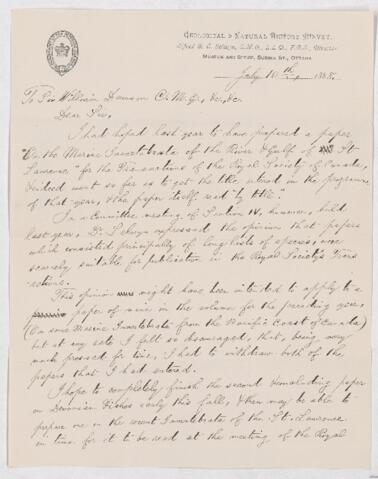 GEOLOGICAL & NATURAL HISTORY SURVEY.
Alfred R. C. Selwyn, C.M.G., LL.D., F.R.S., Director
MUSEUM AND OFFICE, SUSSEX ST., OTTAWA
July 10th 188
To Sir William Dawson C.M.G., &c, &c.
Dear Sir,
I had hoped last year to have prepared a paper
"On the Marine Invertebrata of the River & Gulf of St
Lawrence" for the Transactions of the Royal Society of Canada,
& indeed went so far as to get the title entered in the programme
of that year, & the paper itself read "by title."
In a Committee meeting of Section IV, however, held
last year, Dr Selwyn expressed the opinion that papers
which consisted principally of long lists of species, were
scarcely suitable for publication in the Royal Society's Trans
actions.
This opinion might have been intended to apply to a
paper of mine in the volume for the preceding year,
(On some Marine Invertebrata from the Pacific Coast of Canada)
but at any rate I felt so discouraged, that, being very
much pressed for time, I had to withdraw both of the
papers that I had entered.
I hope to completely finish the second & concluding paper
on Devonian Fishes early this fall, & then may be able to
prepare one on the recent Invertebrata of the St. Lawrence
in time for it to be read at the meeting of the Royal